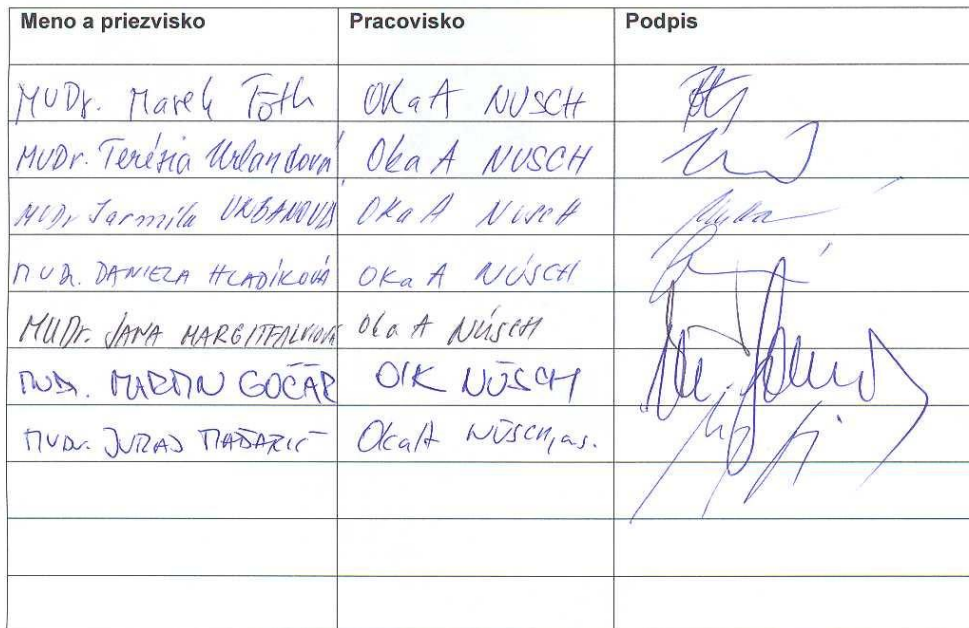 Meno a priezvisko Pracovisko Podpis
MUDr. Marek Tóth OKaA NUSCH
MUDr. Terésia Urlandová OkaA NUSCH
MUDr Jarmila URBANOVÁ OKaA NUSCH
MUDr. DANIELA HLADÍKOVÁ OKaA NÚSCH
MUDr. JANA MARGITFALVIOVÁ OKaA NÚSCH
MUDr. MARTIN GOČÁR OIK NÚSCH
MUDr. JURAJ MAĎARIČ OKaA NÚSCH, a.s.